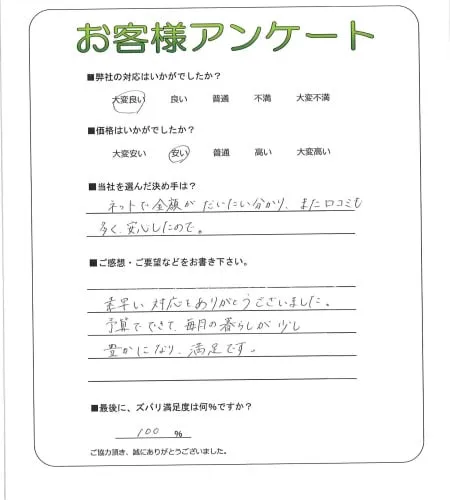 お客様アンケート
■弊社の対応はいかがでしたか？
大変良い 良い 普通 不満 大変不満
■価格はいかがでしたか？
大変安い 安い 普通 高い 大変高い
■当社を選んだ決め手は？
ネットで金額がだいたい分かり、また口コミも
多く、安心したので。
■ご感想・ご要望などをお書き下さい。
素早い対応をありがとうございました。
予算でできて、毎月の暮らしが少し
豊かになり、満足です。
■最後に、ズバリ満足度は何％ですか？
100 %
ご協力頂き、誠にありがとうございました。